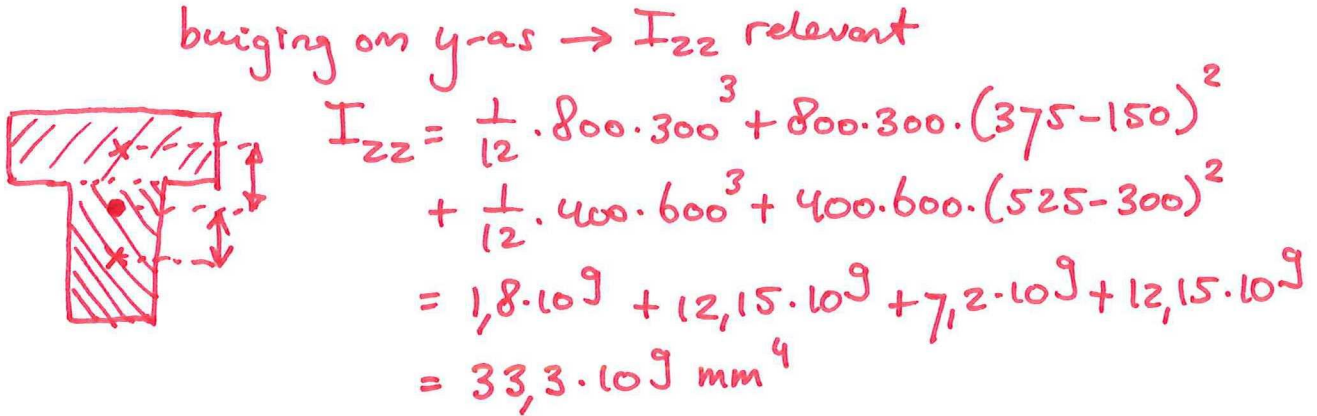 buiging om y-as → Izz relevant
Izz = 1/12 · 800 · 300³ + 800 · 300 · (375-150)²
+ 1/12 · 400 · 600³ + 400 · 600 · (525-300)²
= 1,8 · 10⁹ + 12,15 · 10⁹ + 7,2 · 10⁹ + 12,15 · 10⁹
= 33,3 · 10⁹ mm⁴